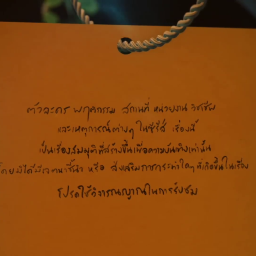 ตัวละคร พฤติกรรม สถานที่ หน่วยงาน อาชีพ
และเหตุการณ์ต่างๆ ในซีรีส์ เรื่องนี้
เป็นเรื่องสมมุติที่สร้างขึ้นเพื่อความบันเทิงเท่านั้น
โดยมิได้มีเจตนาชี้นำ หรือ ส่งเสริมการกระทำใดๆ ที่เกิดขึ้นในเรื่อง
โปรดใช้วิจารณญาณในการรับชม